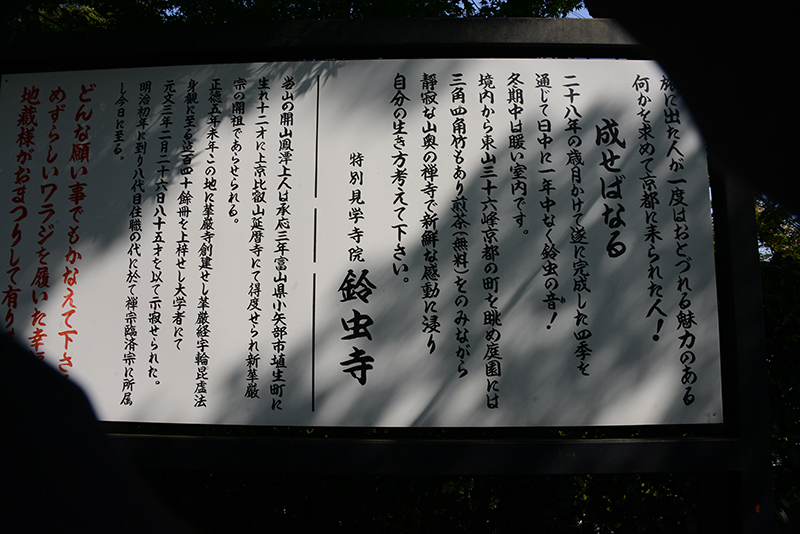 旅に出た人が一度はおとづれる魅力のある
何かを求めて京都に来られた人！
成せばなる
二十八年の歳月かけて遂に完成した四季を
通じて日中に一年中なく鈴虫の音！
冬期中は暖い室内です。
境内から東山三十六峰京都の町を眺め庭園には
三角四角竹もあり煎茶（無料）をのみながら
静寂な山奥の禅寺で新鮮な感動に浸り
自分の生き方考えて下さい。
特別見学寺院 鈴虫寺
当山の開山鳳潭上人は承応三年富山県小矢部市埴生町に
生れ十二才に上京比叡山延暦寺にて得度せられ新華厳
宗の開祖であらせられる。
正徳五年末年この地に華厳寺創建せし華厳経字輪毘盧法
身観に至る迄百四十餘冊を上梓せし大学者にて
元文三年二月二十六日八十五才を以て示寂せられた。
明治初年に到り八代目住職の代に於て禅宗臨済宗に所属
し今日に至る。
どんな願い事でもかなえて下さ
めずらしいワラジを履いた幸
地蔵様がおまつりして有り